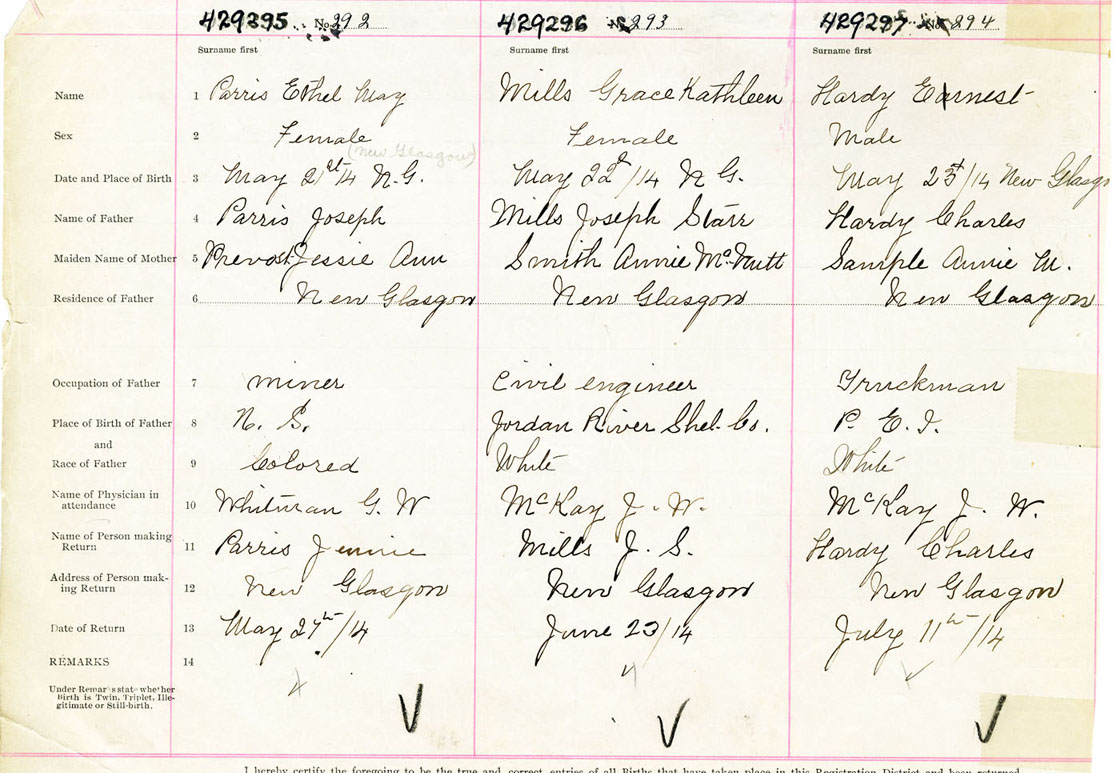 429295 No 292 429296 No 293 429297 No 294
Surname first Surname first Surname first
Name 1 Parris Ethel May Mills Grace Kathleen Hardy Earnest
Sex 2 Female Female Male
(New Glasgow)
Date and Place of Birth 3 May 21st 14 N.G. May 22d/14 N G. May 23d/14 New Glasgo
Name of Father 4 Parris Joseph Mills Joseph Starr Hardy Charles
Maiden Name of Mother 5 Prevost Jessie Ann Smith Annie McNutt Sample Annie M.
Residence of Father 6 New Glasgow New Glasgow New Glasgow
Occupation of Father 7 Miner Civil engineer Truckman
Place of Birth of Father 8 N. S. Jordan River Shel. Co. P. E. I.
and
Race of Father 9 Colored White White
Name of Physician in
attendance 10 Whitman G. W McKay J. W. McKay J. W.
Name of Person making
Return 11 Parris Jennie Mills J. S. Hardy Charles
Address of Person mak-
ing Return 12 New Glasgow New Glasgow New Glasgow
Date of Return 13 May 27th/14 June 23/14 July 11th/14
REMARKS 14
Under Remarks state whether
Birth is Twin, Triplet, Ille-
gitimate or Still-birth.
I hereby certify the foregoing to be the true and correct entries of all Births that have taken place in this Registration District and been returned